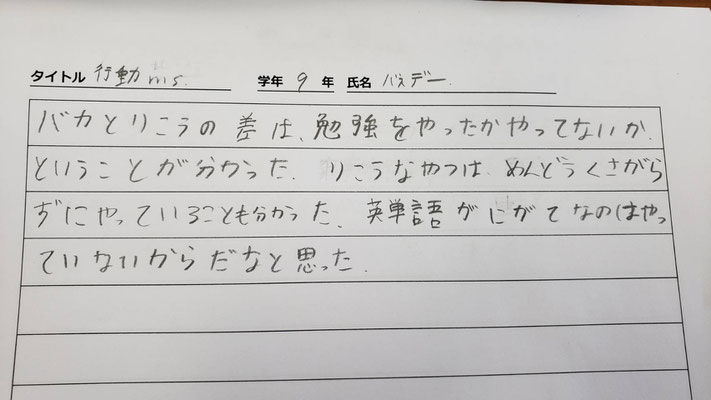 タイトル 行動ms. 学年 9 年 氏名 バースデー.
バカとりこうの差は、勉強をやったかやってないか、
ということが分かった。りこうなやつは、めんどうくさがら
ずにやっていることも分かった、英単語がにがてなのはやっ
ていないからだなと思った.